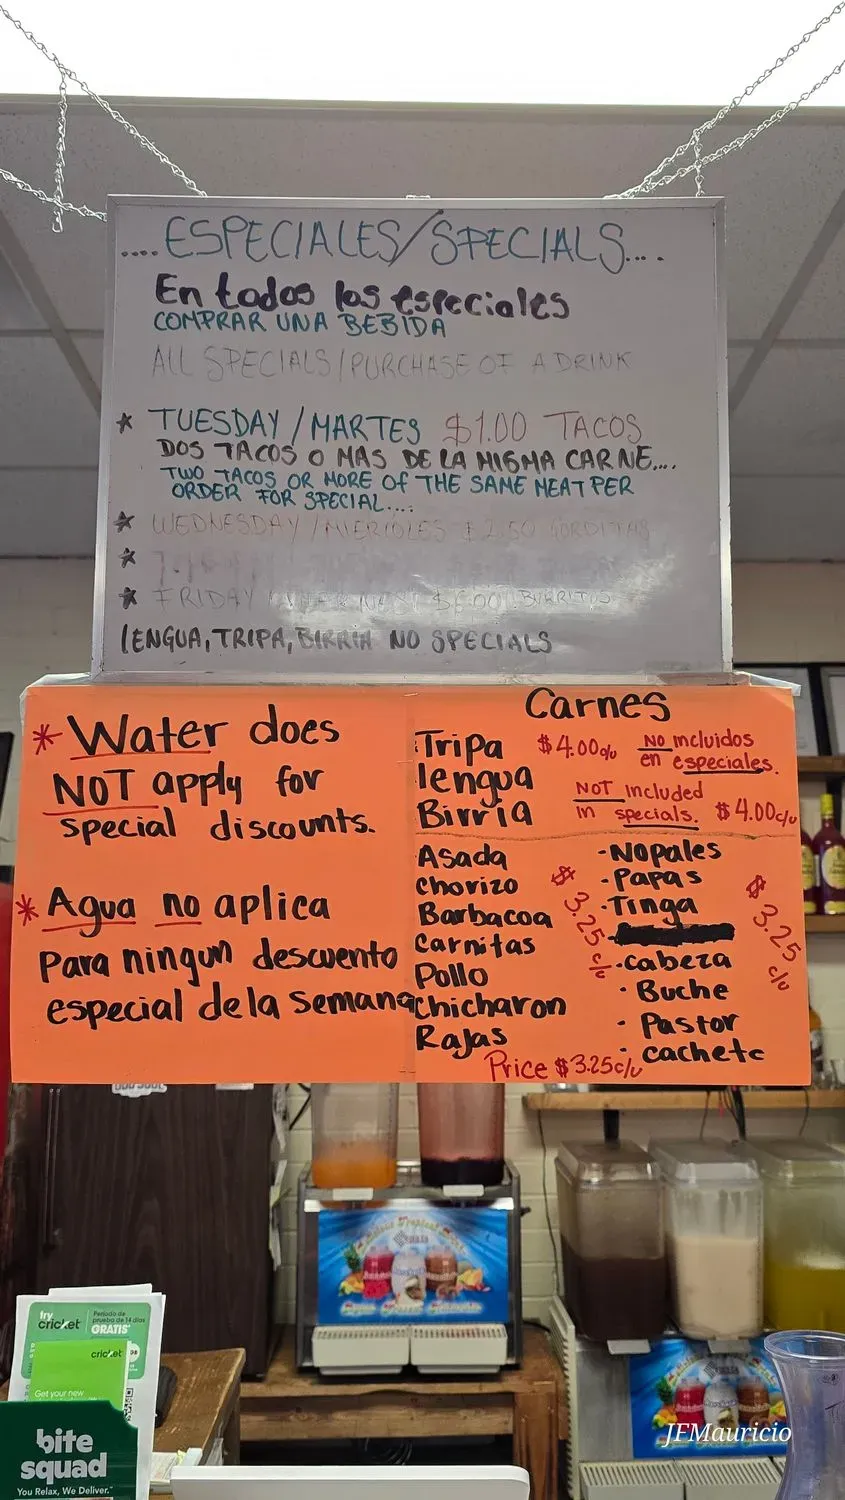 ....ESPECIALES/SPECIALS....
En todos los especiales
COMPRAR UNA BEBIDA
ALL SPECIALS/PURCHASE OF A DRINK
* TUESDAY/MARTES $1.00 TACOS
DOS TACOS O MAS DE LA MISMA CARNE....
TWO TACOS OR MORE OF THE SAME MEAT PER
ORDER FOR SPECIAL....
* WEDNESDAY/MIERCOLES $2.50 GORDITAS
*
* FRIDAY $6.00 BURRITOS
LENGUA, TRIPA, BIRRIA NO SPECIALS
* Water does
NOT apply for
special discounts.
* Agua no aplica
Para ningun descuento
especial de la semana
Carnes
Tripa
lengua
Birria
$4.00c/u
NO incluidos
en especiales.
NOT included
in specials. $4.00c/u
Asada
chorizo
Barbacoa
carnitas
Pollo
chicharon
Rajas
$3.25 c/u
·Nopales
·Papas
·Tinga
·cabeza
·Buche
·Pastor
·cachete
$3.25 c/u
Price $3.25c/u
try
cricket
Periodo de
prueba de 14 días
GRATIS
cricket
Get your new
bite
squad
You Relax, We Deliver.
JFMauricio